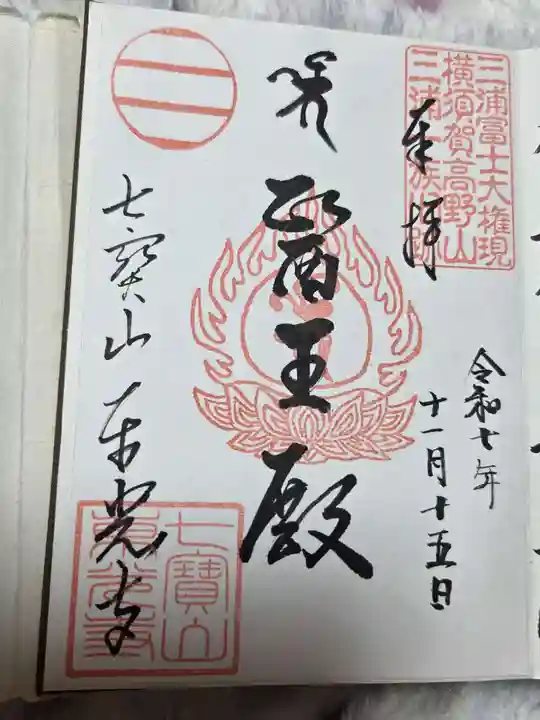 三浦冨士大権現
横須賀高野山
三浦族
奉拝
令和七年
十一月十五日
醫王殿
七寶山 東光寺
七寶山
東光寺